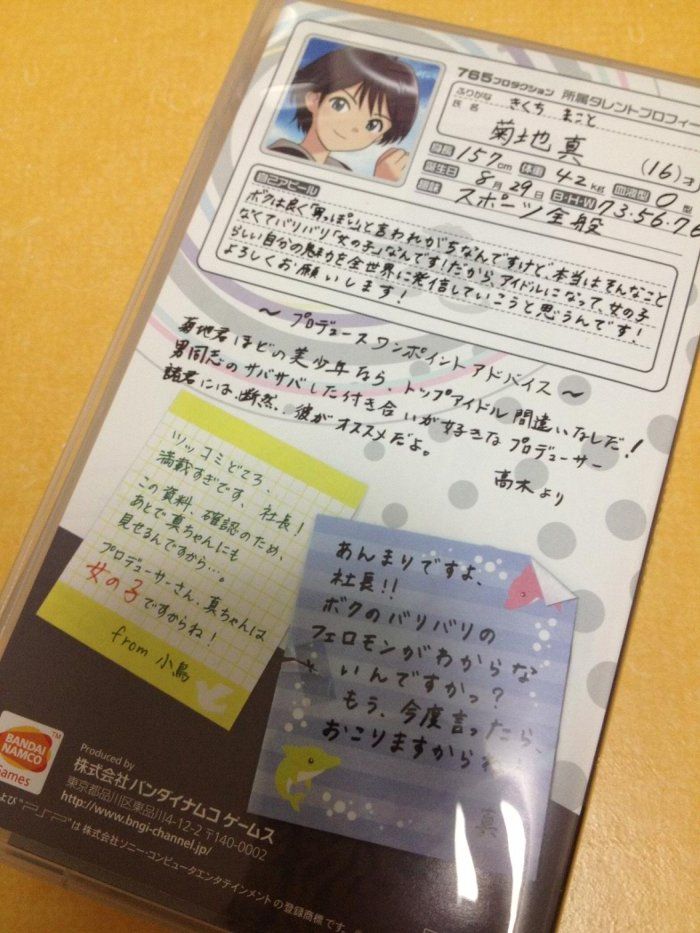 765プロダクション 所属タレントプロフィー
ふりがな きくち まこと
氏名 菊地 真 (16)才
身長 157cm 体重 42kg 血液型 O型
誕生日 8月29日 B-H-W 73.56.76
趣味 スポーツ全般
自己アピール
ボクは良く「男っぽい」と言われがちなんですけど、本当はそんなこと
なくてバリバリ「女の子」なんです!だから、アイドルになって、女の子
らしい自分の魅力を全世界に発信していこうと思うんです!
よろしくお願いします!
～プロデュースワンポイントアドバイス～
菊地君ほどの美少年なら、トップアイドル間違いなしだ!
男同志のサバサバした付き合いが好きなプロデューサー
諸君には、断然、彼がオススメだよ。
高木より
ツッコミどころ、
満載すぎです、社長!
この資料、確認のため、
あとで真ちゃんにも
見せるんですから…。
プロデューサーさん、真ちゃんは
女の子ですからね!
from 小鳥
あんまりですよ、
社長!!
ボクのバリバリの
フェロモンがわからな
いんですかっ?
もう、今度言ったら、
おこりますからね
真
BANDAI
NAMCO
Games
Produced by
株式会社バンダイナムコゲームス
東京都品川区東品川4-12-2 〒140-0002
http://www.bngi-channel.jp/
および"PSP"は株式会社ソニー・コンピュータエンタテインメントの登録商標です。